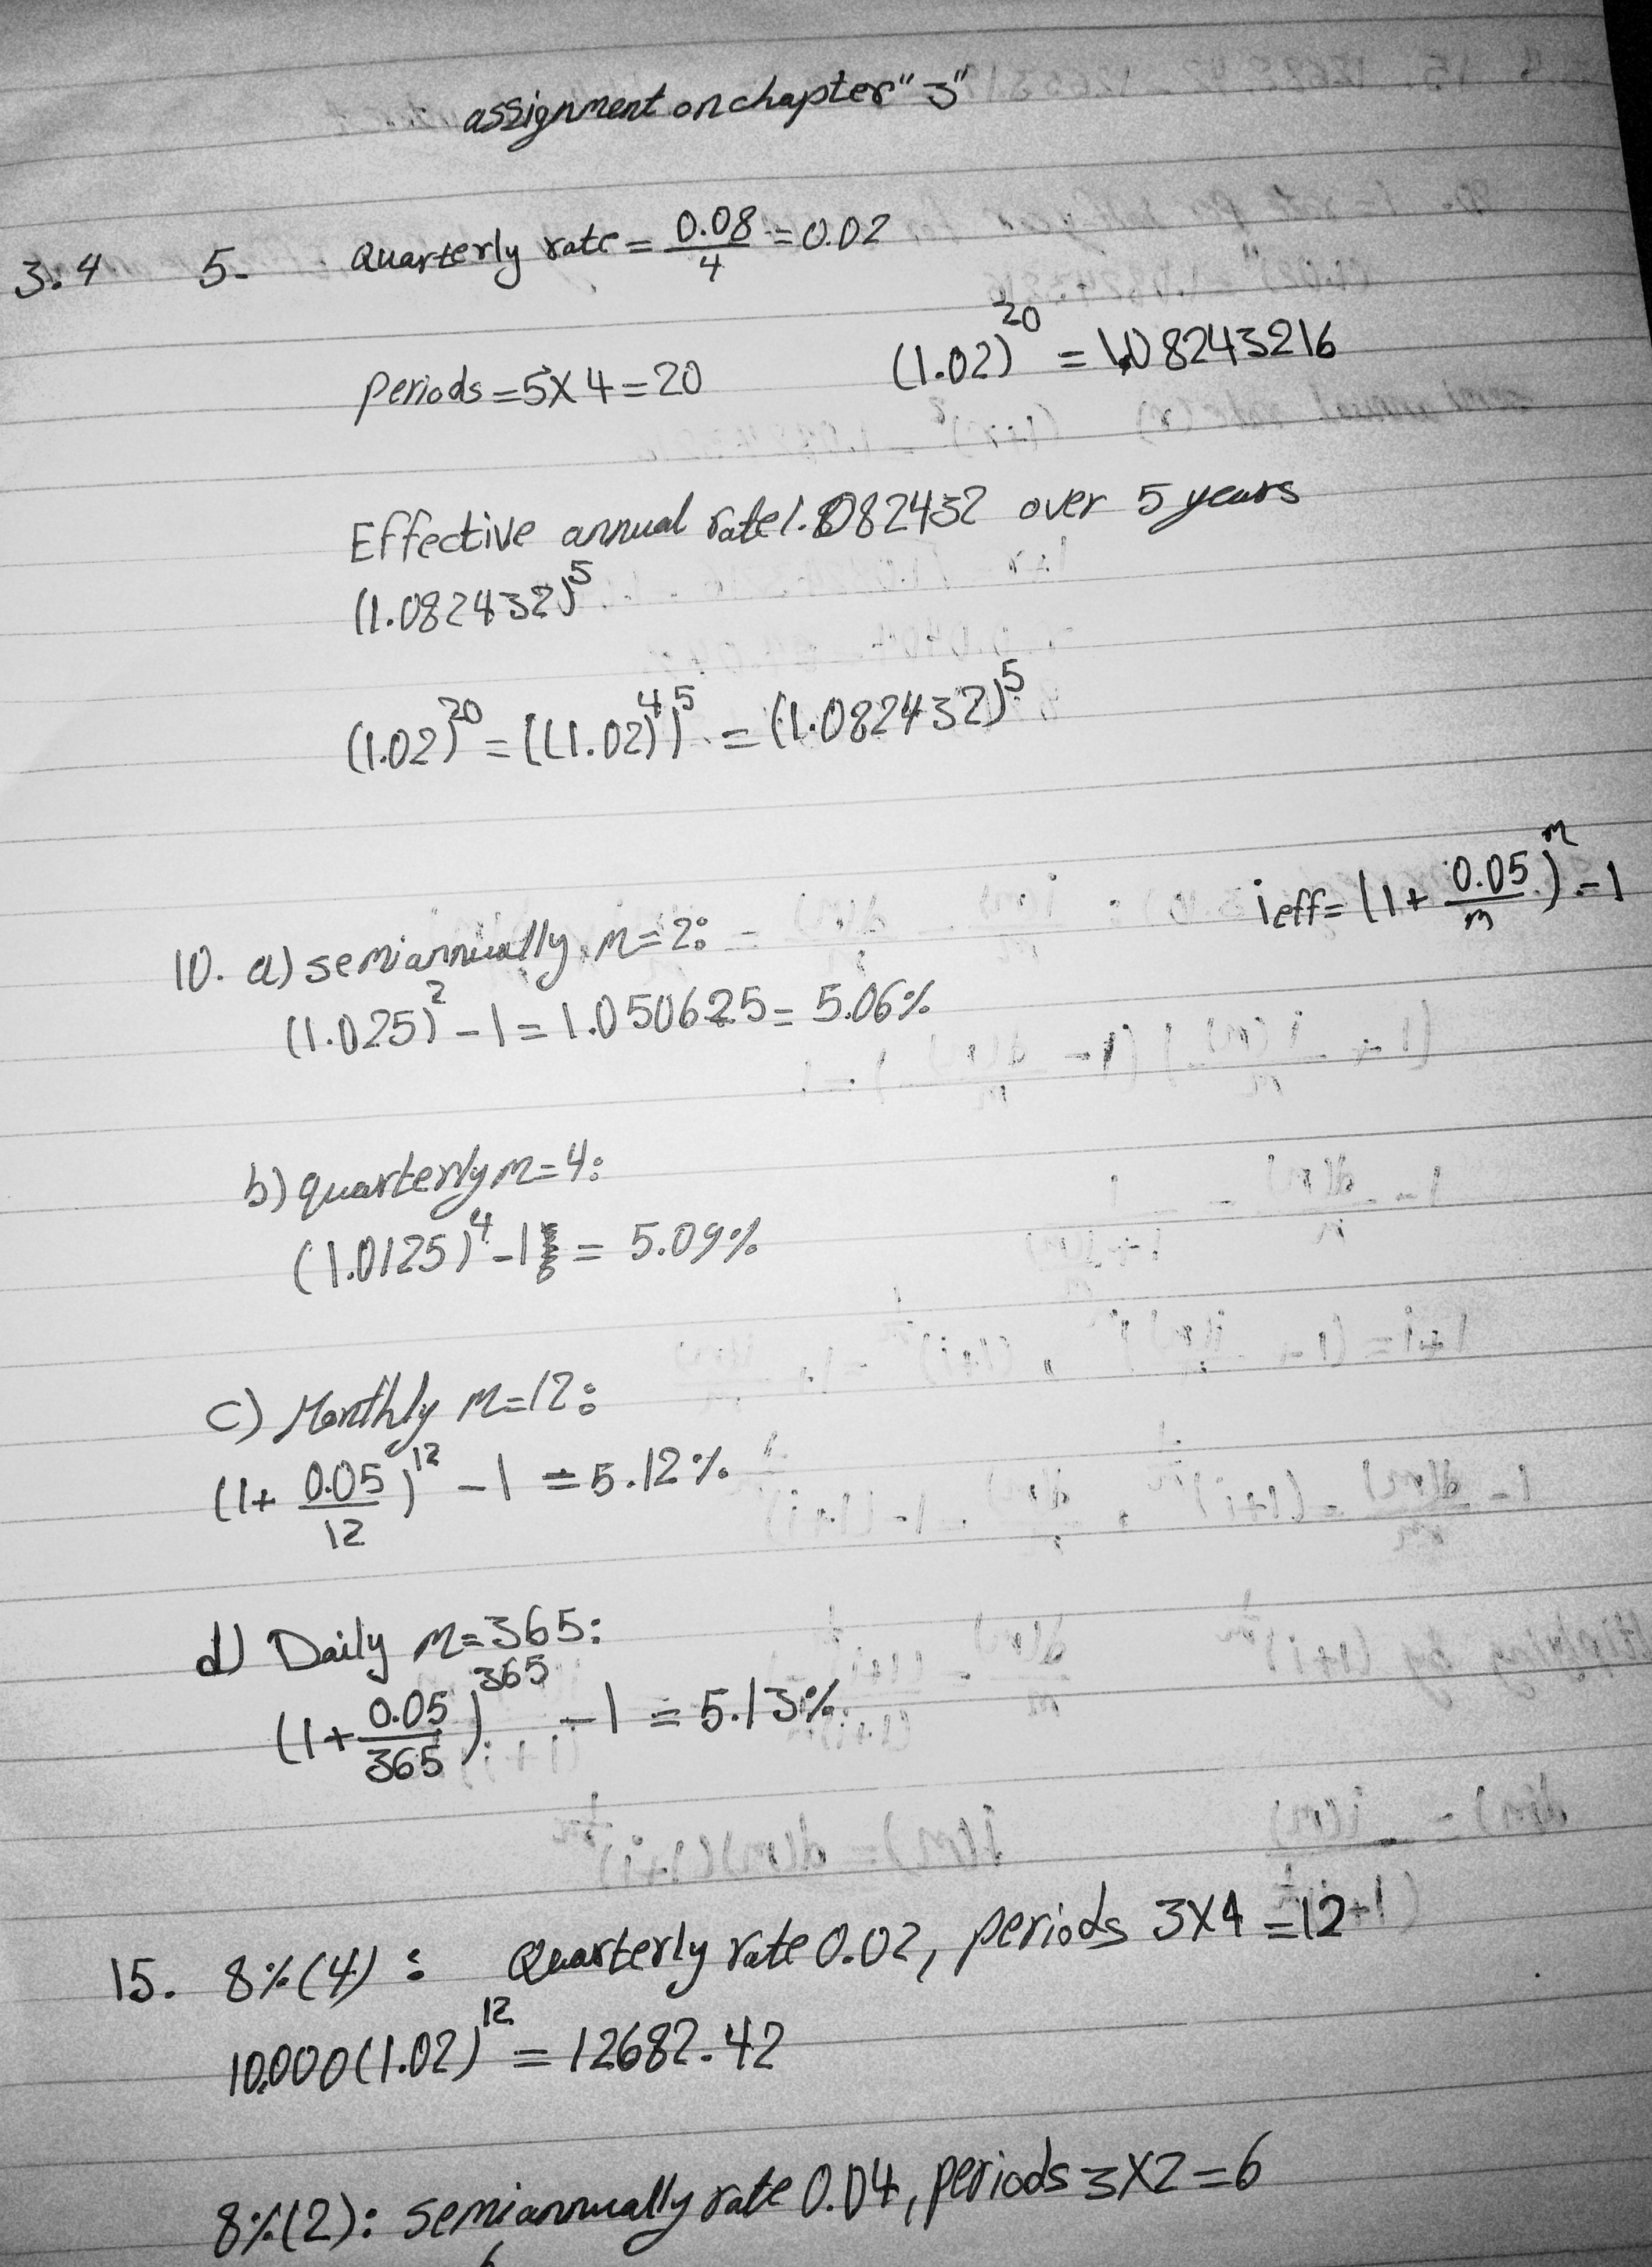 assignment on chapter "3"
3.4 5- Quarterly rate = 0.08/4 = 0.02
periods = 5 × 4 = 20 (1.02)^20 = 1.08243216
Effective annual rate 1.082432 over 5 years
(1.082432)^5
(1.02)^20 = ((1.02)^4)^5 = (1.082432)^5
ieff = (1 + 0.05/m)^m - 1
10. a) semiannually, m = 2:
(1.025)^2 - 1 = 1.050625 = 5.06%
b) quarterly m = 4:
(1.0125)^4 - 1 = 5.09%
c) Monthly m = 12:
(1 + 0.05/12)^12 - 1 = 5.12%
d) Daily m = 365:
(1 + 0.05/365)^365 - 1 = 5.13%
15. 8%(4): Quarterly rate 0.02, periods 3×4 = 12
10,000(1.02)^12 = 12682.42
8%(2): semiannually rate 0.04, periods 3×2 = 6